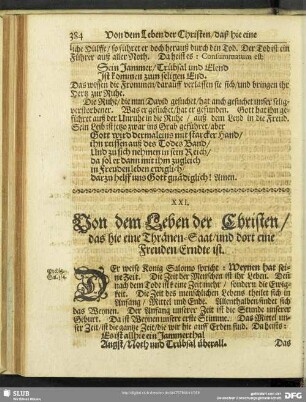 384 Von dem Leben der Christen/ daß hie eine
liche Hülffe/ so führet er doch herauß durch den Tod. Der Tod ist ein
Führer auß aller Noth. Da heist es: Consummatum est:
Sein Jammer/ Trübsal und Elend
Ist kommen zum seligen End.
Das wissen die Frommen/ darauff verlassen sie sich/ und bringen ihr
Hertz zur Ruhe.
Die Ruhe/ die nun David gesuchet/ hat auch gesuchet unser selig-
verstorbener. Was er gesuchet/ hat er gefunden. Gott hat ihn ge-
führet auß der Unruhe in die Ruhe/ auß dem Leid in die Freud.
Sein Leib ist jetzo zwar ins Grab geführet/ aber
Gott wird dermaleins mit starcker Hand/
ihn reissen auß des Todes Band/
Und zu sich nehmen in sein Reich/
da sol er dann mit ihm zugleich
in Freuden leben ewiglich/
dar zu helff uns Gott gnädiglich! Amen.
XXI.
Von dem Leben der Christen/
das hie eine Thränen-Saat/ und dort eine
Freuden-Erndte ist.
DEr weise König Salomo spricht: Weynen hat sei-
ne Zeit. Die Zeit der Menschen ist ihr Leben. Den
nach dem Tod ist keine Zeit mehr/ sondern die Ewig-
keit. Die Zeit des menschlichen Lebens theilet sich in
Anfang/ Mittel und Ende. Allenthalben findet sich
das Weynen. Der Anfang unserer Zeit ist die Stunde unserer
Geburt. Da ist Weynen unsere erste Stimme. Das Mittel un-
ser Zeit/ ist die gantze Zeit/ die wir hie auff Erden sind. Da heists:
Es ist allhie ein Jammerthal
Angst/ Noth und Trübsal überall.
Das
SLUB